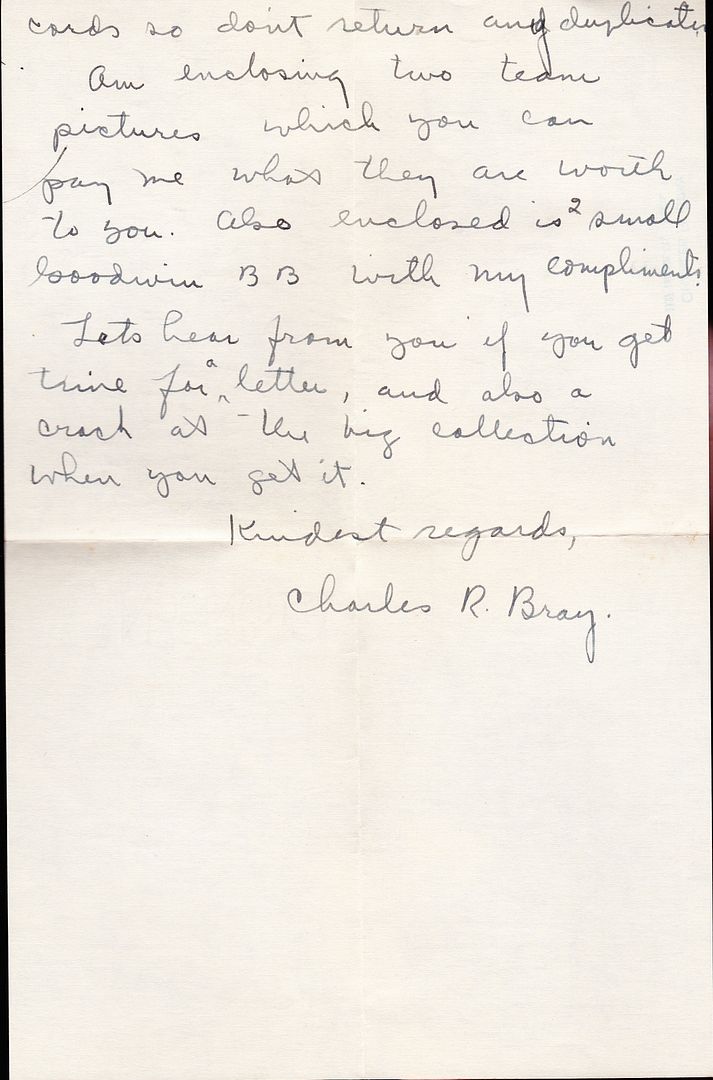 cards so don't return any duplicates
Am enclosing two team
pictures which you can
pay me what they are worth
to you. Also enclosed is 2 small
Goodwin B B with my compliments.
Lets hear from you if you get
time for a letter, and also a
crack at the big collection
when you get it.
Kindest regards,
Charles R. Bray.